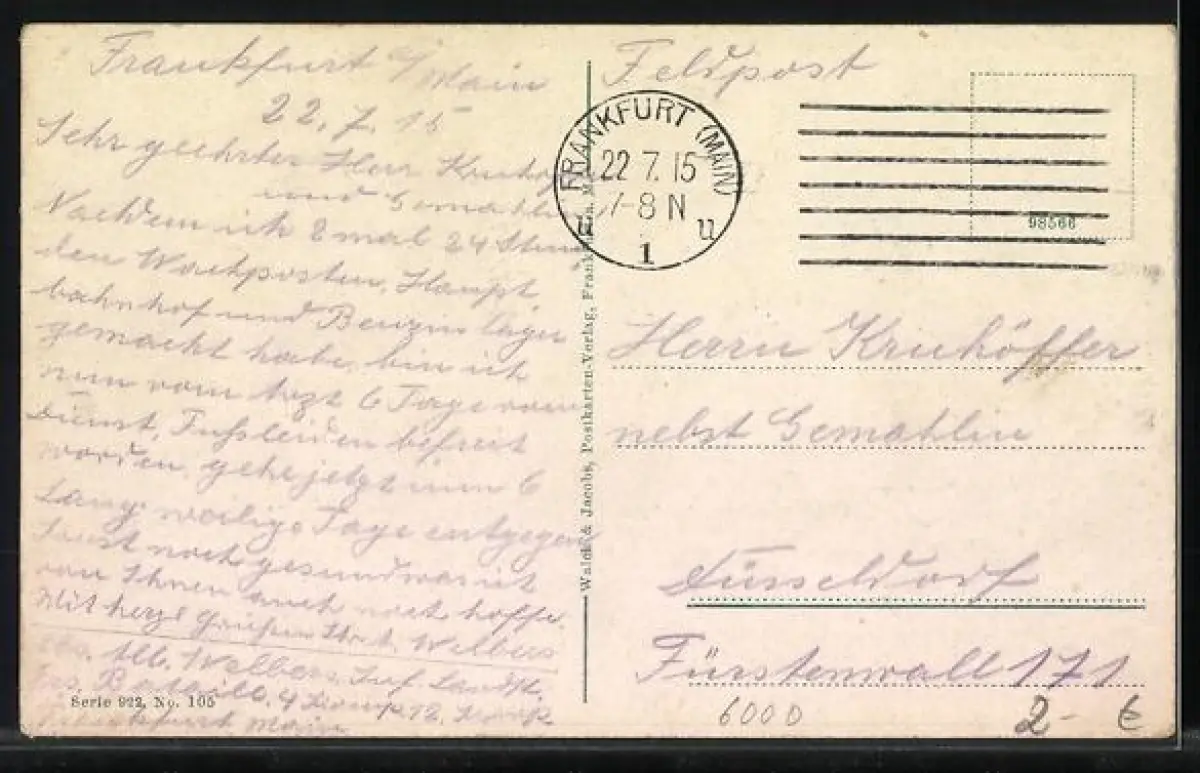 Frankfurt a/
Main
22. 7. 15
Sehr geehrter Herr Kruhöf
und Gemahlin
Nachdem ich 2 mal 24 Stun
den Wachposten, Haupt,
bahnhof und Benzin lager
gemacht habe, bin ich
nun vom Arzt 6 Tage vom
Dienst, Fussleiden befreit
worden, gehe jetzt nun 6
Lang weilige Tage entgegen
Sonst noch gesund was ich
von Ihnen auch noch hoffe.
Mit herzl Grüßen Ihr A. Welbers
Alb. Welbers, Inf. Landst,
Bataill. 4 Komp. 12. Korp
Frankfurt Main
Serie 922, No. 105
Walck & Jacobs, Postkarten-Verlag, Frankfurt a. M.
Feldpost
FRANKFURT (MAIN)
22 7. 15
7-8 N
1 u
98566
Herrn Kruhöffer
nebst Gemahlin
Düsseldorf
Fürstenwall 171
6000
2- €